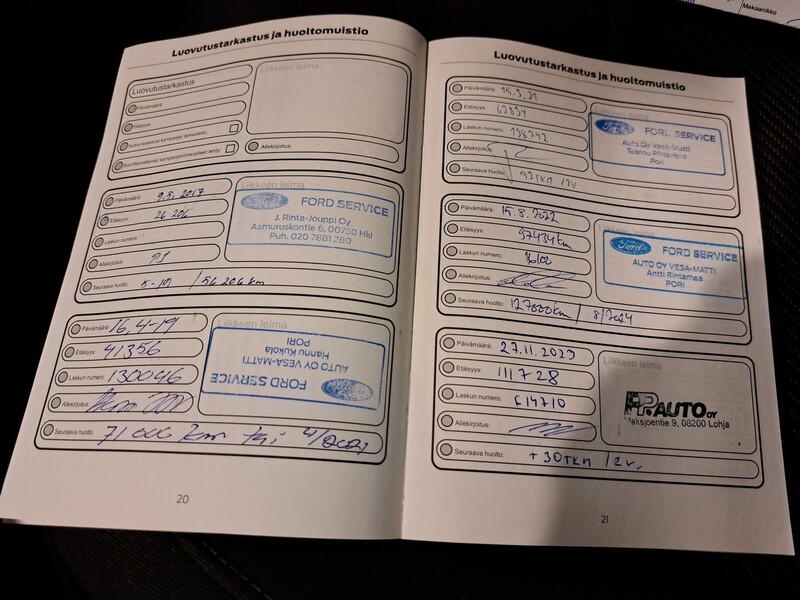 Mekaanikko
Luovutustarkastus ja huoltomuistio
Luovutustarkastus
Päivämäärä:
Etäisyys:
Auton koskevat kampanjat tarkastettu:
kampanjatoimenpiteet tehty:
Liikkeen leima
Allekirjoitus:
Päivämäärä: 9.5.2017
Etäisyys: 26 206
Laskun numero:
Allekirjoitus:
Seuraava huolto: 5-19 / 56 206 km
Liikkeen leima
Ford
FORD SERVICE
J. Rinta-Jouppi Oy
Asmuruskontie 6, 00750 Hki
Puh. 020 7881 280
Päivämäärä: 16.4-19
Etäisyys: 41356
Laskun numero: 130046
Allekirjoitus:
Seuraava huolto: 71 000 km tai 4/2021
Liikkeen leima
Ford
FORD SERVICE
AUTO OY VESA-MATTI
Hannu Kukola
PORI
20
Luovutustarkastus ja huoltomuistio
Päivämäärä: 15.3.21
Etäisyys:
Laskun numero: 138742
Allekirjoitus:
Seuraava huolto: 92tkm /2v
Liikkeen leima
Ford
FORD SERVICE
Auto Oy Vesa-Matti
Teemu Pihlavisto
Pori
Päivämäärä: 15.8.2022
Etäisyys: 97434km
Laskun numero:
Allekirjoitus:
Seuraava huolto: 127000km / 8/2024
Liikkeen leima
Ford
FORD SERVICE
AUTO OY VESA-MATTI
Antti Rintamaa
PORI
Päivämäärä: 27.11.2023
Etäisyys: 111728
Laskun numero: 614710
Allekirjoitus:
Seuraava huolto: +30tkm /2v.
Liikkeen leima
AUTO OY
Maksjoentie 9, 08200 Lohja
21